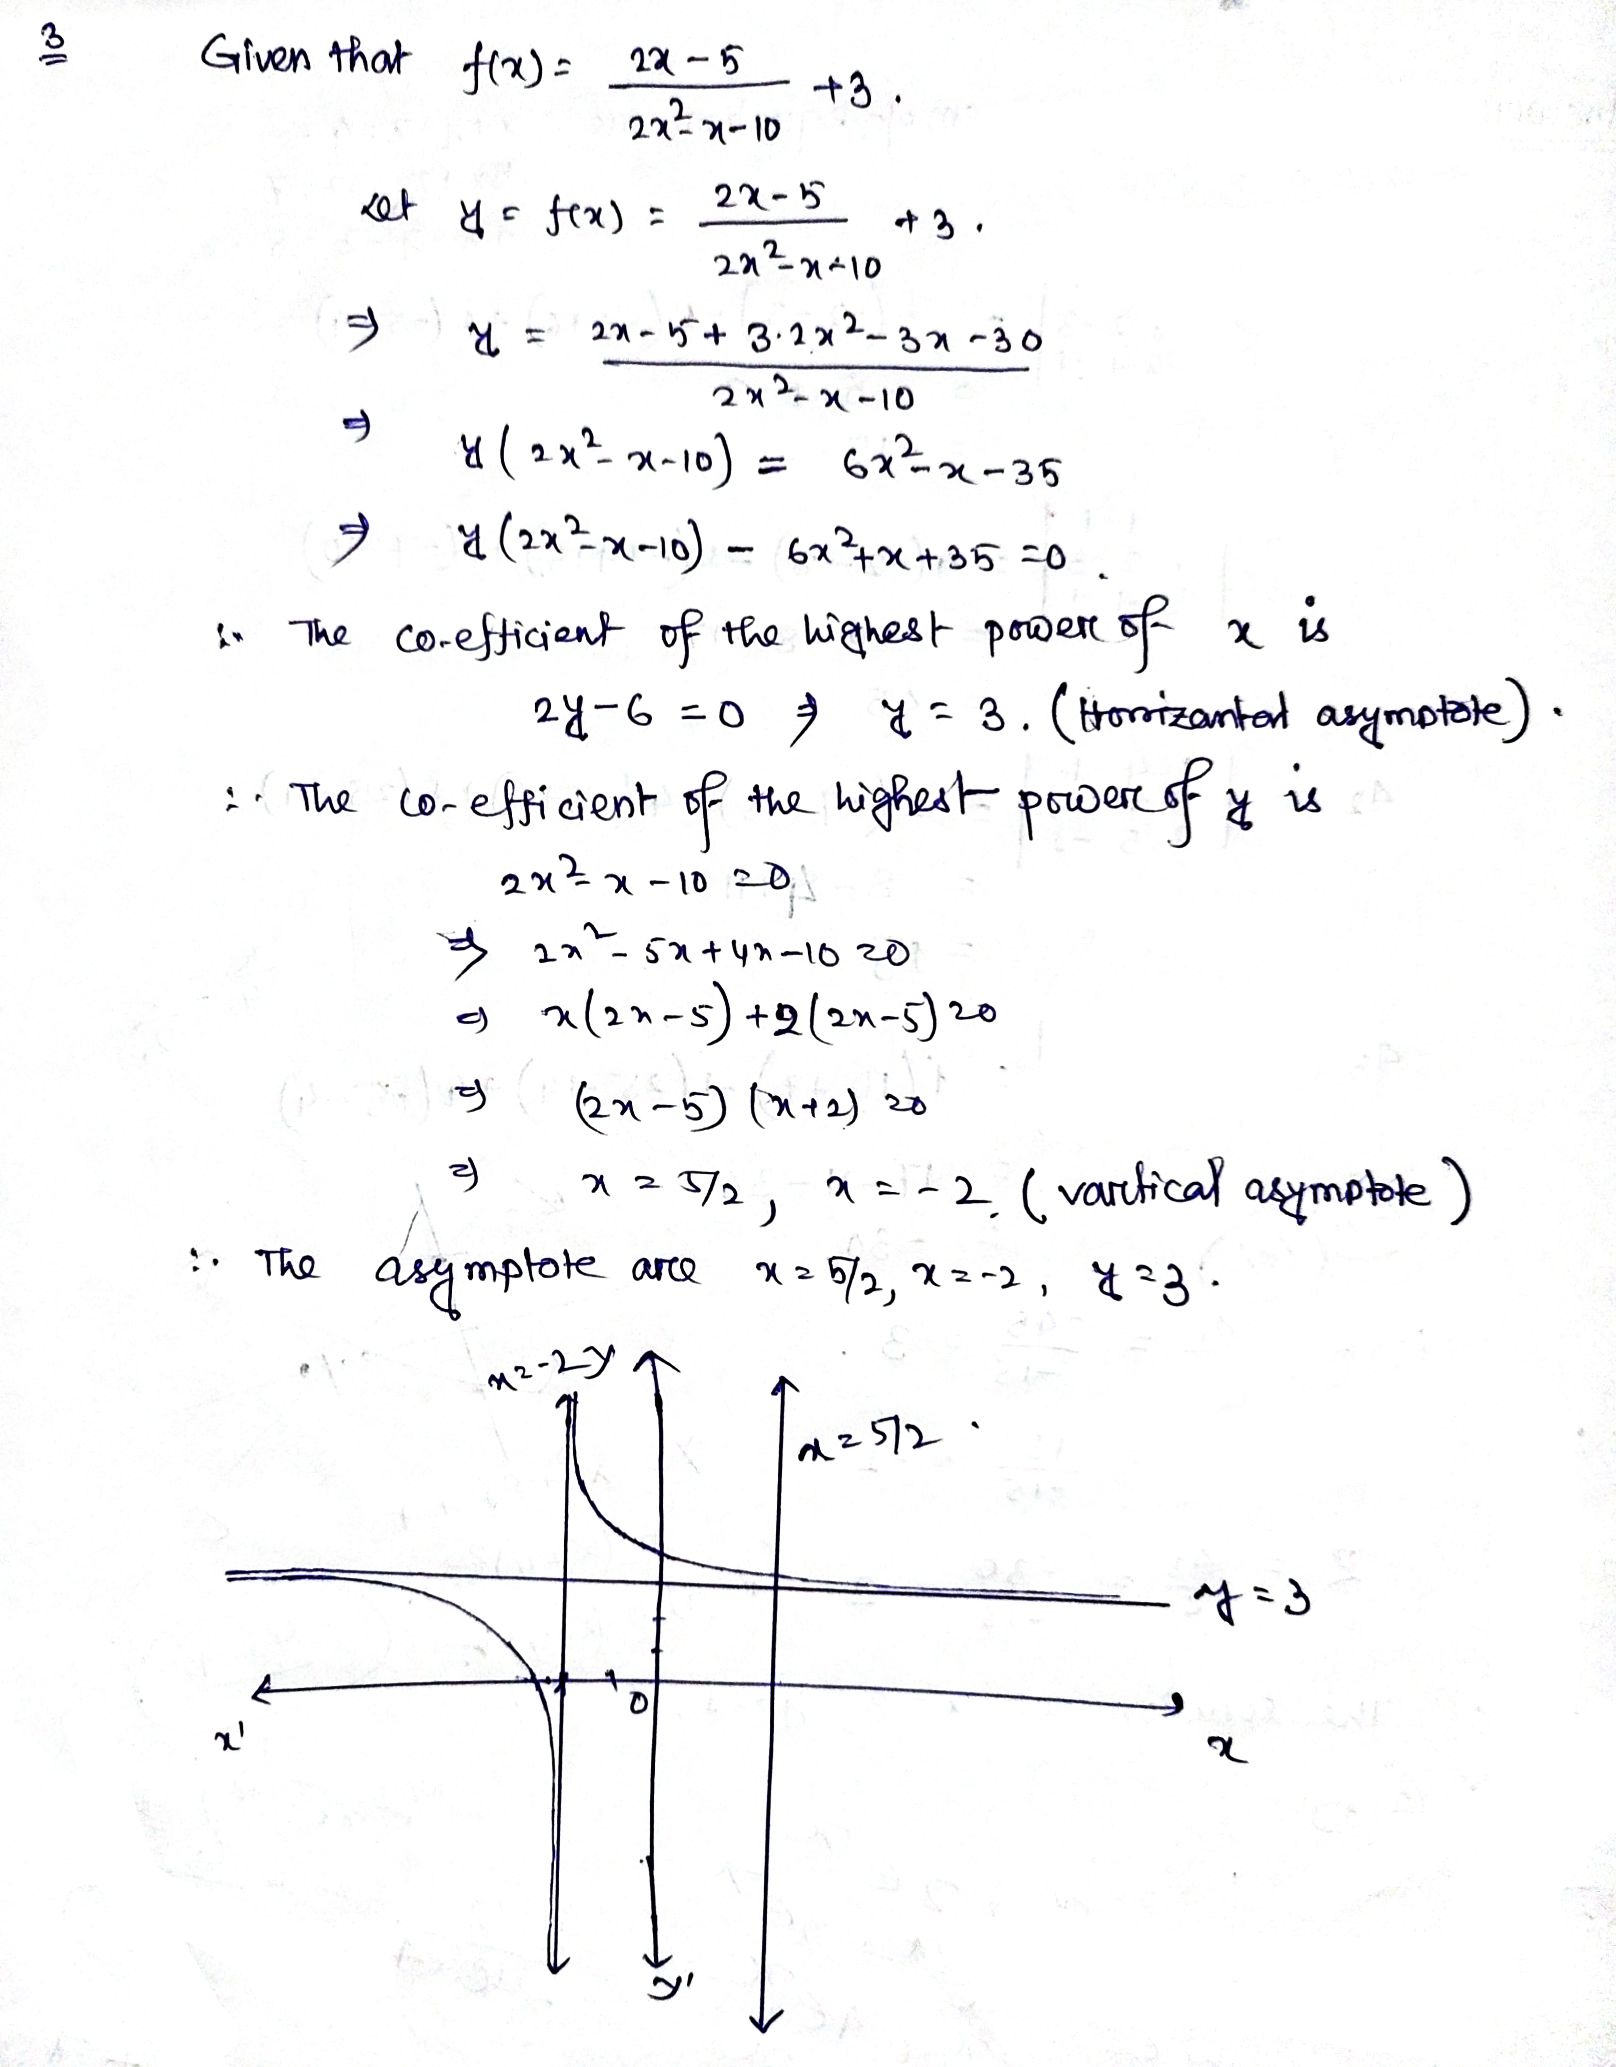 3
Given that f(x) = (2x - 5)/(2x² - x - 10) + 3.
Let y = f(x) = (2x - 5)/(2x² - x - 10) + 3.
⇒ y = (2x - 5 + 3·2x² - 3x - 30)/(2x² - x - 10)
⇒ y(2x² - x - 10) = 6x² - x - 35
⇒ y(2x² - x - 10) - 6x² + x + 35 = 0.
∴ The co-efficient of the highest power of x is
2y - 6 = 0 ⇒ y = 3. (Horrizantal asymptote).
∴ The co-efficient of the highest power of y is
2x² - x - 10 = 0
⇒ 2x² - 5x + 4x - 10 = 0
⇒ x(2x - 5) + 2(2x - 5) = 0
⇒ (2x - 5)(x + 2) = 0
⇒ x = 5/2, x = -2. (vartical asymptote)
∴ The asymptote are x = 5/2, x = -2, y = 3.
x = -2 y
x = 5/2
y = 3
0
x'
x
y'